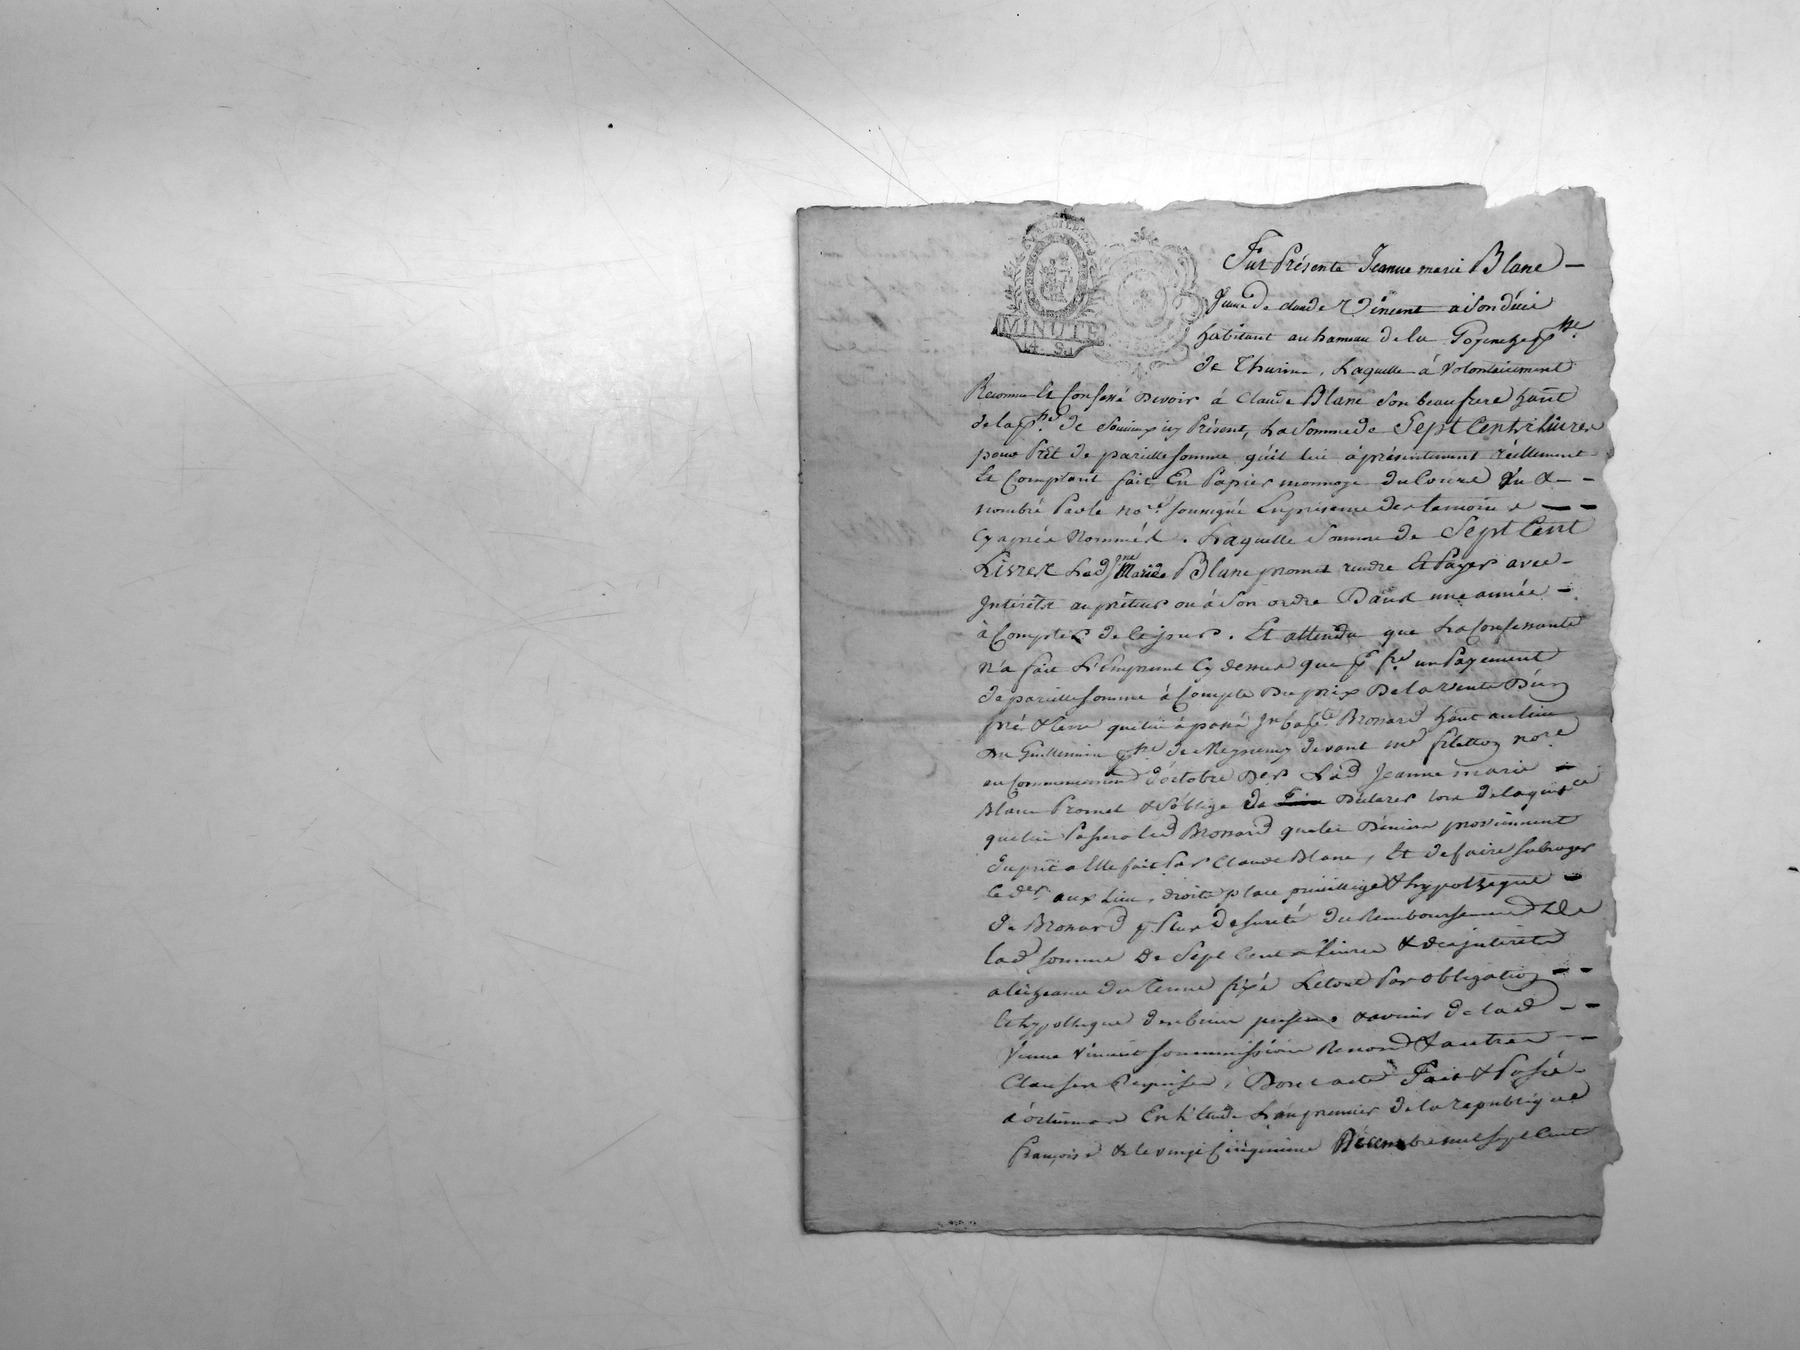 MINUTE
4. S.
Fut Présente Jeanne marie Blanc —
Veuve de claude Vincent a son décié
habitant au hameau de la p.sse
de Thurins, Laquelle à Volontairement
Reconnu Et Confessé Devoir à Claude Blanc son beaufrere hant
de la p.sse de Souvieux icy Présent, La Somme de Sept Cents Livres
pour Prêt de pareille somme qu'il lui à présentement réellement
Et Comptant fait En Papier monnoye du Cours Vu & — -
nombré Par le no.re soussigné En présence des temoins — —
Cy après Nommés. Laquelle Somme de Sept Cent
Livres Lad Jne Marie Blanc promet rendre Et Payer avec -
Interêts au prêteur ou à Son ordre Dans une année —
à Compter de Ce jour. Et attendu que La Confessante
N'a fait L'Emprunt Cy dessus que p.r fre un Payement
de pareille Somme à Compte Du prix De la vente D'un
pré & terre que lui à passé Brossard hant au lieu
Du Guillermin p.sse de devant me no.re
au Commencement d'octobre Der Lad Jeanne marie —
Blanc Promet & s'oblige De Déclarer lors de la quitce
que lui Passera led Brossard que les Déniers proviennent
du prêt a Elle fait Par Claude Blanc, Et de faire subroger
Ce der. aux Lieu, droits place privillége & hypotheque —
de Brossard p. Plus de sureté du Remboursement De
lad somme De Sept Cents Livres & des interêts
a l'échéance du Terme fixé Le tout Par obligation — —
Et hypotheque des biens présens & avenir de lad - -
Veuve Vincent soummission Renond & autres —
Clauses Requises, Dont acte Fait & Passé -
En L'étude L'an premier de la republique
françoise & le vingt Cinquieme Décembre mil sept Cent